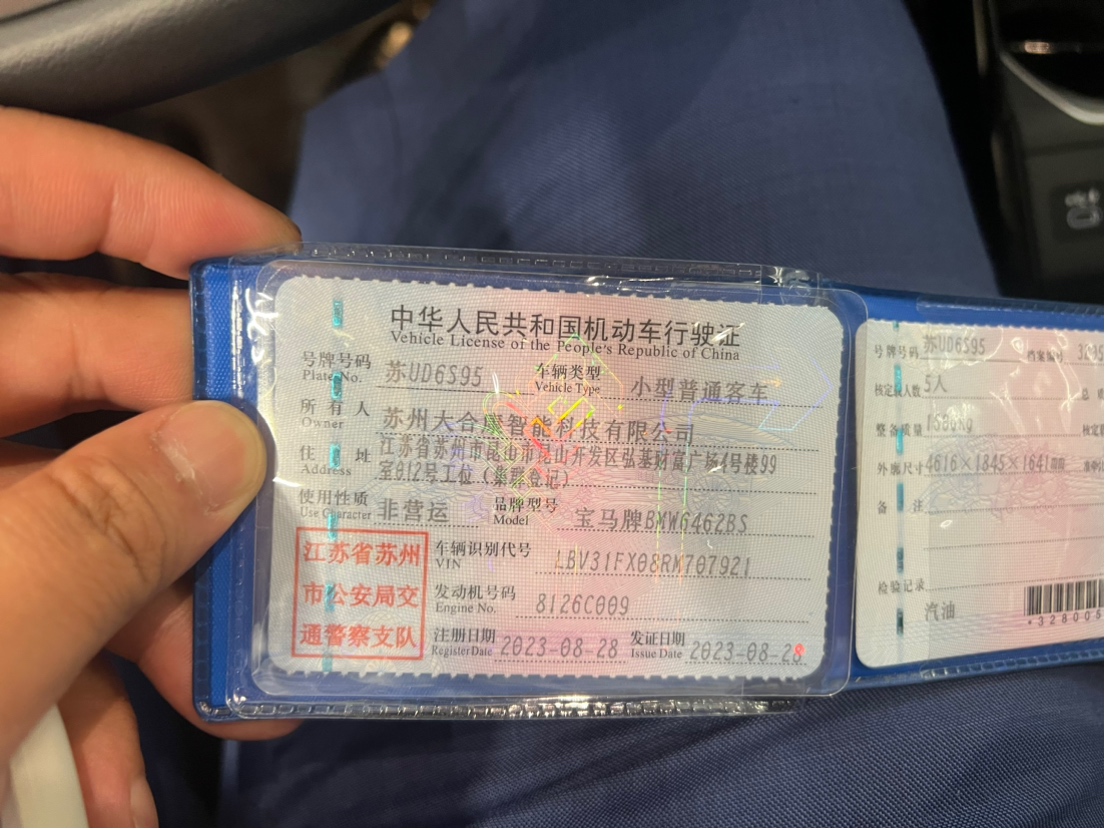 中华人民共和国机动车行驶证
Vehicle License of the People's Republic of China
号牌号码 苏UD6S95 车辆类型 小型普通客车
Plate No. Vehicle Type
所有人 苏州大合魔智能科技有限公司
Owner
住址 江苏省苏州市昆山市昆山开发区弘基财富广场4号楼99
Address 室012号工位（集群登记）
使用性质 非营运 品牌型号 宝马牌BMW6462BS
Use Character Model
江苏省苏州
市公安局交
通警察支队
车辆识别代号 LBV31FX08RM707921
VIN
发动机号码 8126C009
Engine No.
注册日期 2023-08-28 发证日期 2023-08-28
Register Date Issue Date
号牌号码 苏UD6S95 档案编号
核定载人数 5人 总
整备质量 核定
外廓尺寸 4616×1845×1641mm 准牵
备注
检验记录
汽油